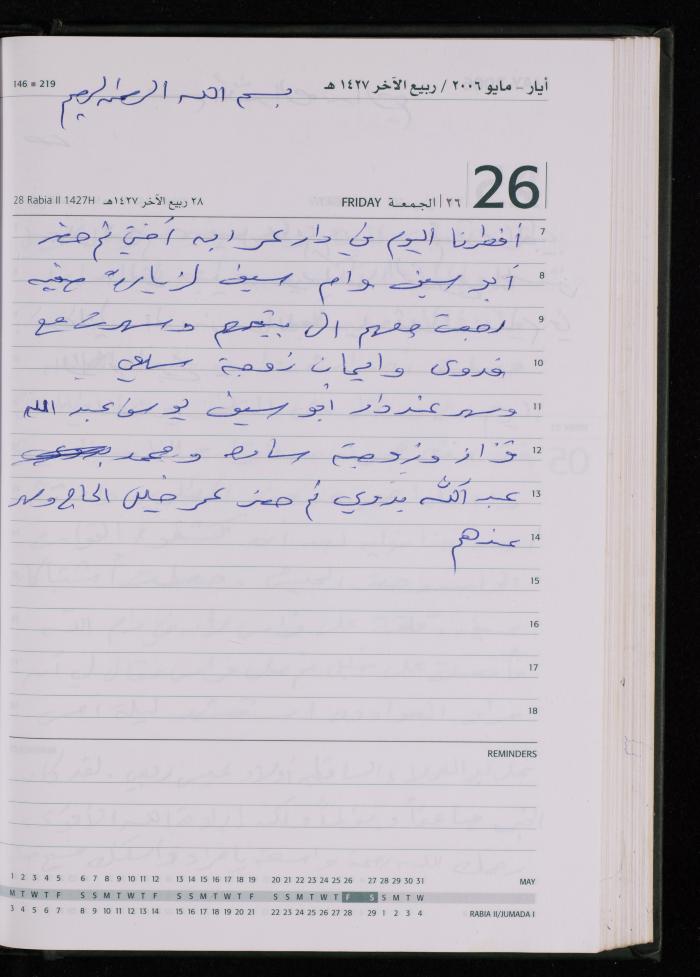 146 ■ 219
أيار - مايو ٢٠٠٦ / ربيع الآخر ١٤٢٧ هـ
بسم الله الرحمن الرحيم
28 Rabia II 1427H ٢٨ ربيع الآخر ١٤٢٧هـ FRIDAY ٢٦ الجمعة 26
7 أفطرنا اليوم في دار عمر ابن أختي ثم حضر
8 أبو سيف وأم سيف لزيارة صفية
9 رجعت معهم الى بيتهم وسهرت مع
10 فدوى وايمان زوجة سامي
11 وسهر عند دار أبو سيف يوسف عبد الله
12 قزاز وزوجته سامه ومحمد
13 عبد الله بدوي ثم حضر عمر خليل الحاج وسهر
14 عندهم
15
16
17
18
REMINDERS
1 2 3 4 5 6 7 8 9 10 11 12 13 14 15 16 17 18 19 20 21 22 23 24 25 26 27 28 29 30 31 MAY
M T W T F S S M T W T F S S M T W T F S S M T W T F S S M T W
3 4 5 6 7 8 9 10 11 12 13 14 15 16 17 18 19 20 21 22 23 24 25 26 27 28 29 1 2 3 4 RABIA II/JUMADA I